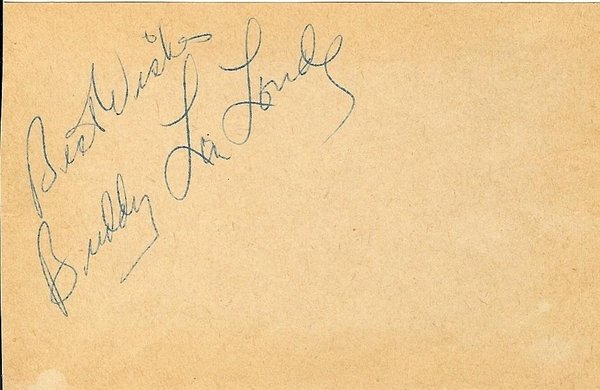 Best Wishes
Buddy La Londe